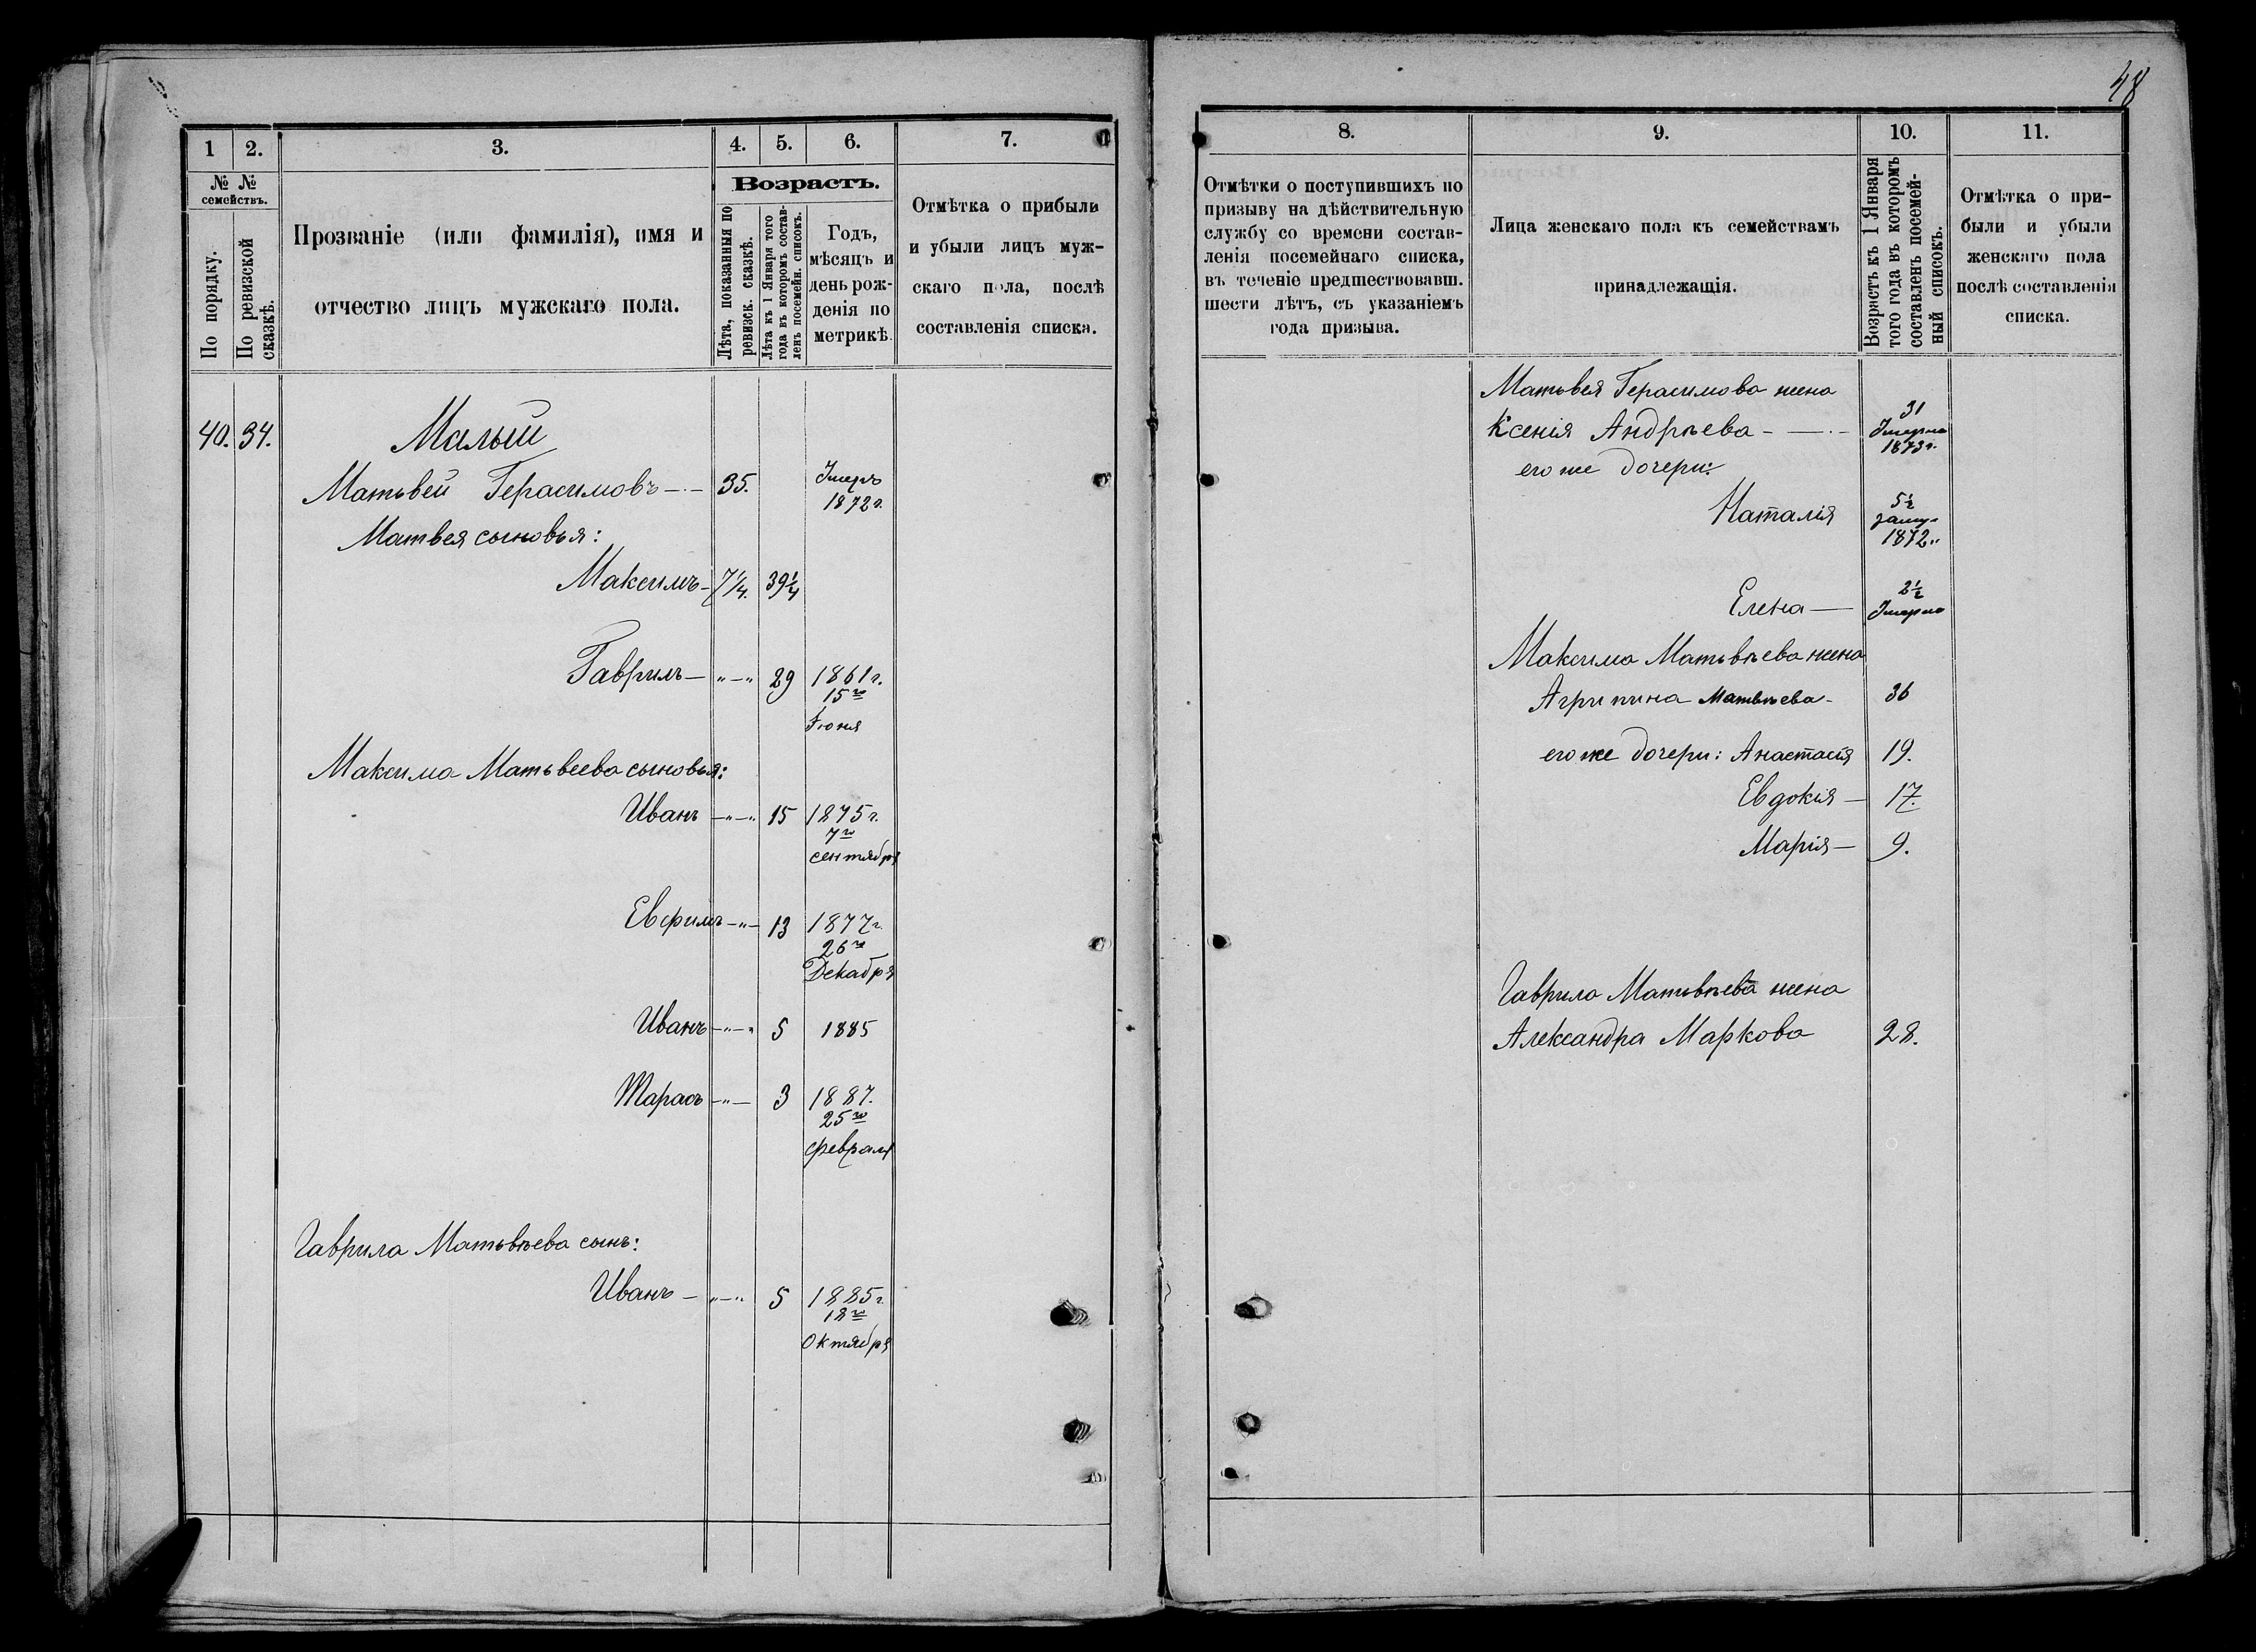 48
1 2. 3. 4. 5. 6. 7.
№ №
семействъ.
По порядку.
По ревизской
сказкѣ.
Прозваніе (или фамилія), имя и
отчество лицъ мужскаго пола.
Возрастъ.
Лѣта, показанныя по
ревизск. сказкѣ.
Лѣта къ 1 Января того
года въ которомъ состав-
ленъ посемейн. списокъ.
Годъ,
мѣсяцъ и
день рож-
денія по
метрикѣ
Отмѣтка о прибыли
и убыли лицъ муж-
скаго пола, послѣ
составленія списка.
40. 34. Малый
Матьвей Герасимовъ — 35. Умеръ
1872 г.
Матвея сыновья:
Максимъ - 7 1/4. 39 1/4
Гаврилъ — „ — „ 29 1861 г.
15го
Іюня
Максима Матьвеева сыновья:
Иванъ — „ — „ 15 1875 г.
7го
сентября
Евфимъ — „ — 13 1877 г.
26го
Декабря
Иванъ — „ — „ 5 1885
Тарасъ — „ — 3 1887.
25го
февраля
Гаврила Матьвѣева сынъ:
Иванъ — „ — „ 5 1885 г.
18го
Октября
8. 9. 10. 11.
Отмѣтки о поступившихъ по
призыву на дѣйствительную
службу со времени состав-
ленія посемейнаго списка,
въ теченіе предшествовавш.
шести лѣтъ, съ указаніемъ
года призыва.
Лица женскаго пола къ семействамъ
принадлежащія.
Возрастъ къ 1 Января
того года въ которомъ
составленъ посемей-
ный списокъ.
Отмѣтка о при-
были и убыли
женскаго пола
послѣ составленія
списка.
Матьвея Герасимова жена
Ксенія Андрѣева — 31
Умерла
1873 г.
его же дочери:
Наталія 5 1/2
заму-
1872 „
Елена — 2 1/2
Умерла
Максима Матьвѣева жена
Агрипина Матвѣева - 36
его же дочери: Анастасія 19.
Евдокія — 17.
Марія — 9.
Гаврила Матьвѣева жена
Александра Маркова 28.